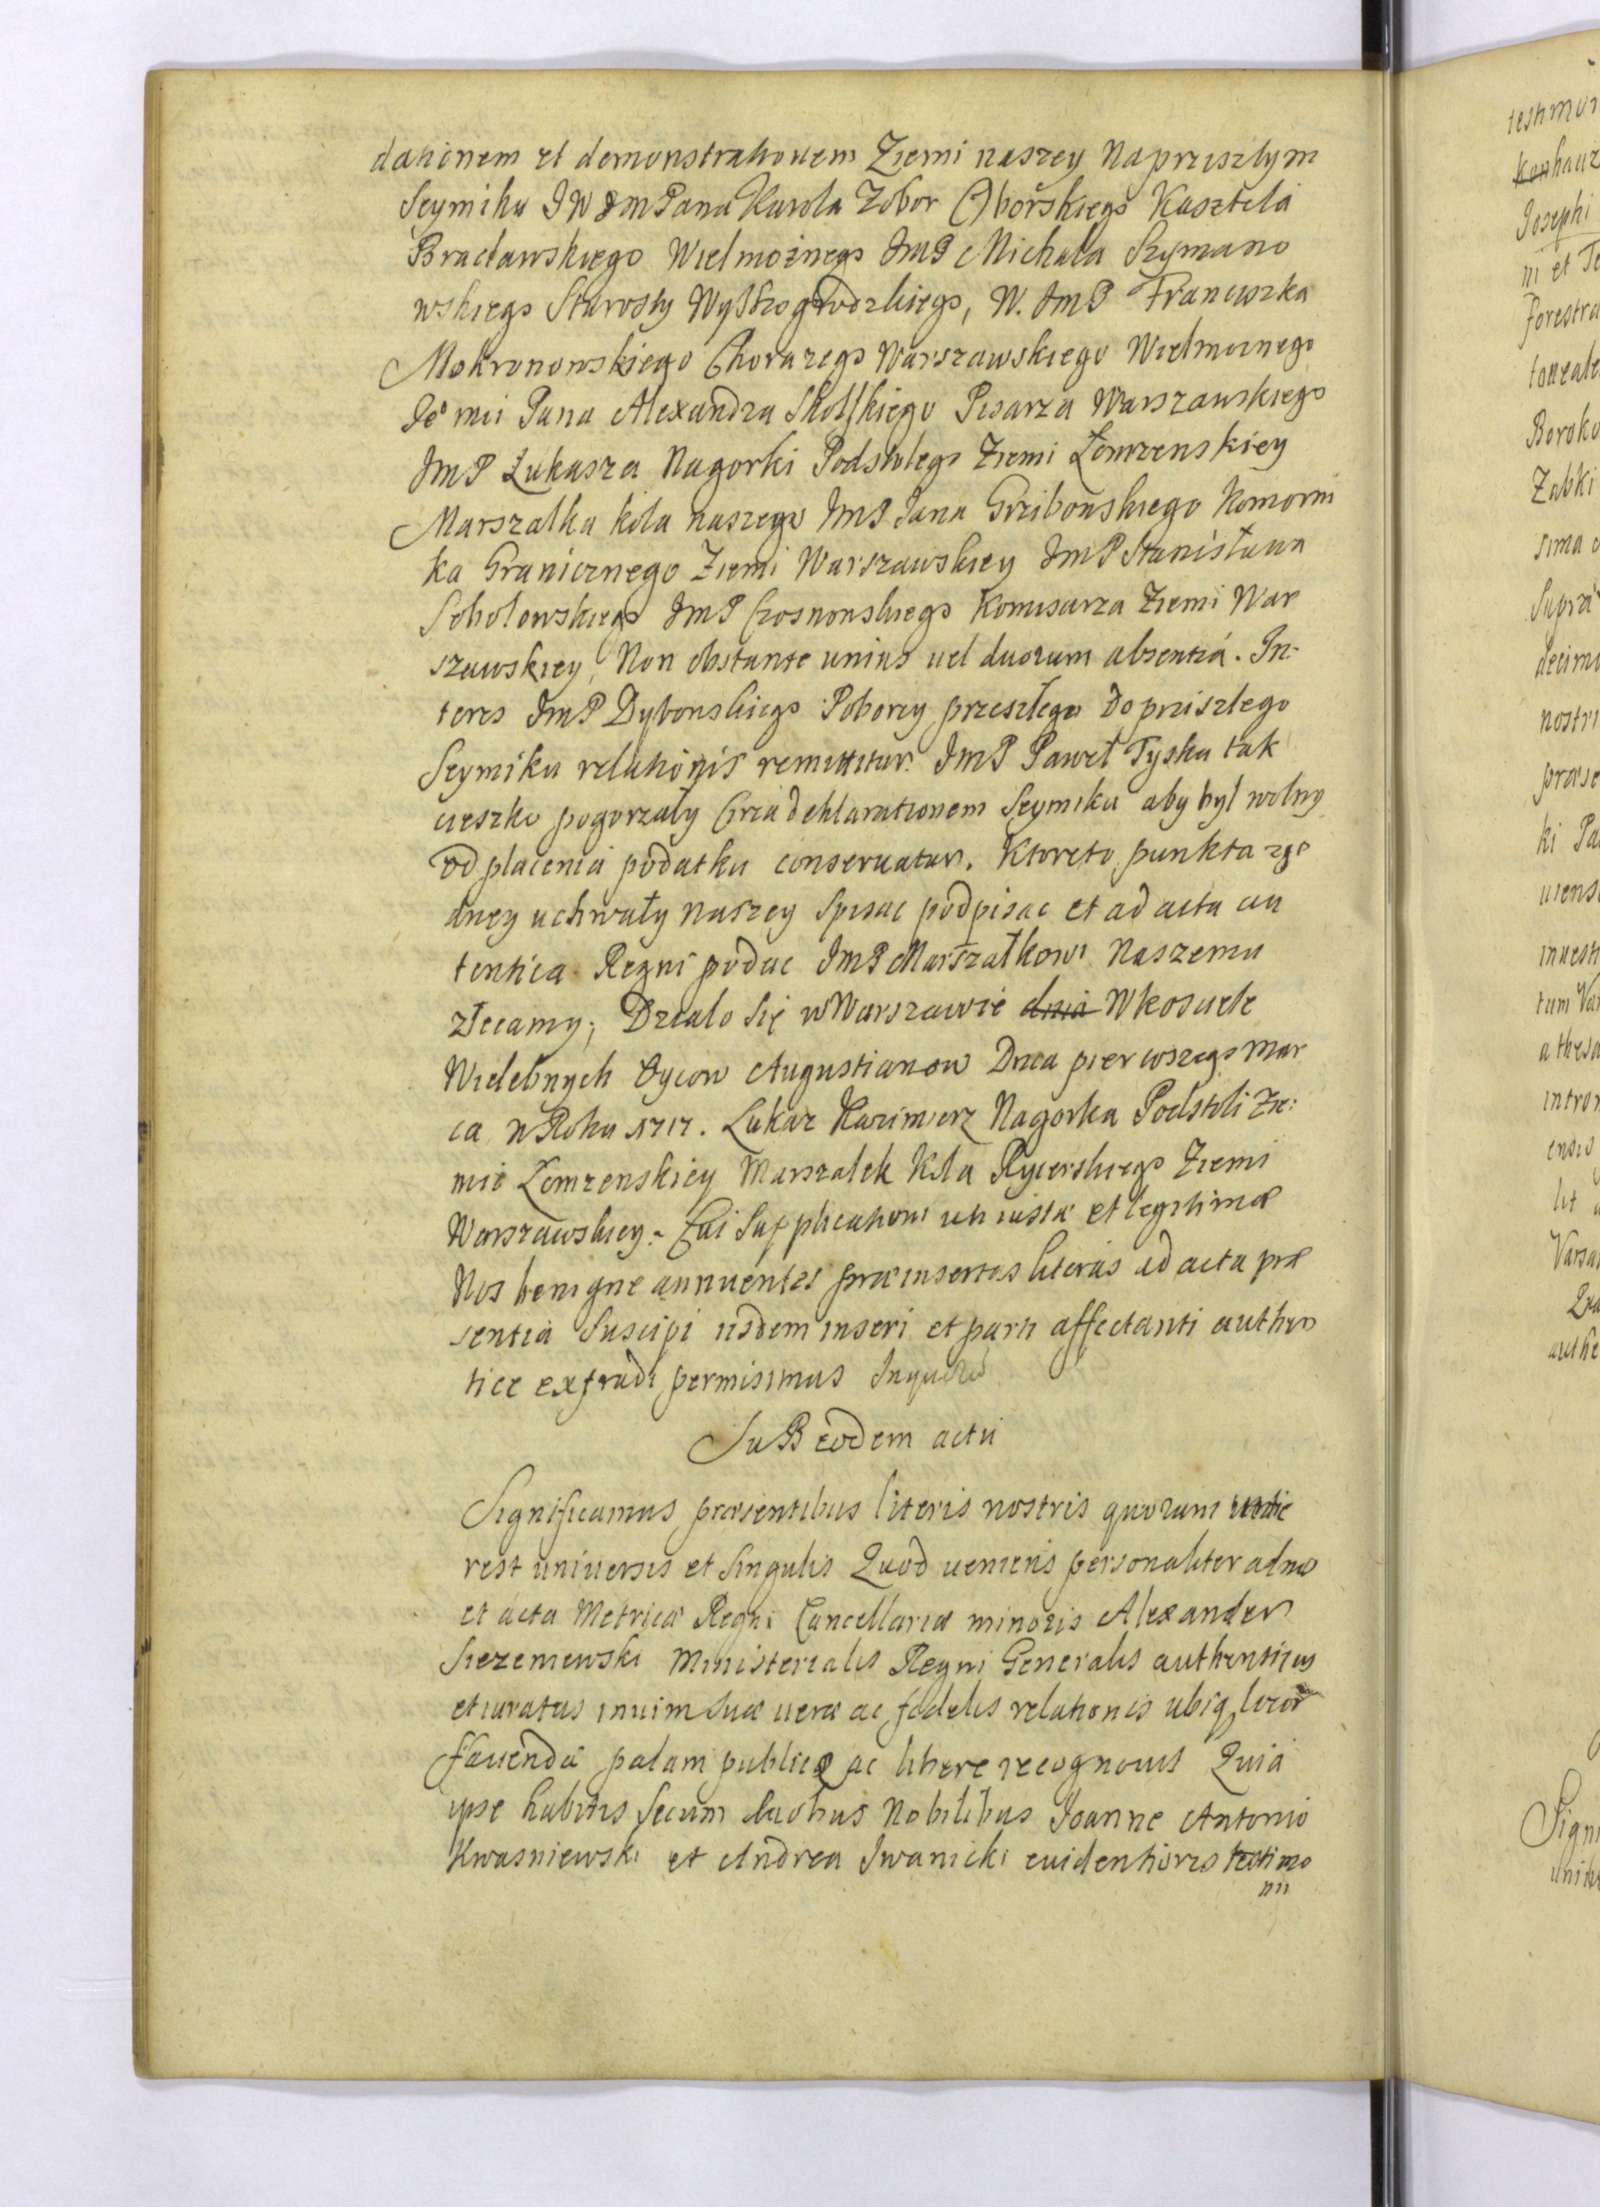 dationem et demonstrationem Ziemi naszey Na przyszłym
Seymiku JW JmPana Karola Zobor Oborskiego Kasztela
Bracławskiego Wielmożnego JmP Michała Szymano
wskiego Starosty Wyszogrodzkiego, W. JmP Franciszka
Mokronowskiego Chorazego Warszawskiego Wielmoznego
Je° mci Pana Alexandra Pisarza Warszawskiego
JmP Łukasza Nagorki Podstolego Ziemi Łomzenskiey
Marszalka kola naszego JmP Jana Grzibowskiego Komorni
ka Granicznego Ziemi Warszawskiey JmP Stanisława
Sobolewskiego JmP Czosnowskiego Komisarza Ziemi War
szawskiey, Non obstante unius vel duorum absentiá. In-
teres JmP Dybowskiego Poborcy przeszłego do prziszłego
Seymiku relationis remittitur. JmP Paweł Tyska tak
cieszko pogorzały deklarationem Seymiku aby był wolny
od placenia podatku conseruatur. Ktoreto punkta zgo
dney uchwały naszey spisac podpisac et ad acta au
tentica Regni podac JmP Marszałkowi Naszemu
złecamy; Działo się w Warszawie dnia W koscele
Wielebnych Oycow Augustianow Dnia pierwszego Mar
ca w Roku 1717. Lukaz Kazimierz Nagorka Podstoli Zie:
mie Łomzenskiey Marszalek Koła Rycerskiego Ziemi
Warszawskiey. Cui supplicationi uti iustæ et legitimæ
Nos benigne annuentes præinsertas literas ad acta præ
sentia Suscipi iisdem inseri et parti affectanti authen
tice extradi permisimus
SuB eodem actu
Significamus præsentibus literis nostris quorum
rest universis et singulis Quod veniens personaliter ad nos
et acta Metricæ Regni Cancellariæ minoris Alexander
Siezeniewski Ministerialis Regni Generalis authenticus
et iuratus in vim suæ veræ ac fidelis relationis ubiq locor
favendæ palam publice ac libere recognovit Quia
ipse habitis secum duobus Nobilibus Joanne Antonio
Kwasniewski et Andrea Iwanicki evidentioris testimo
nii